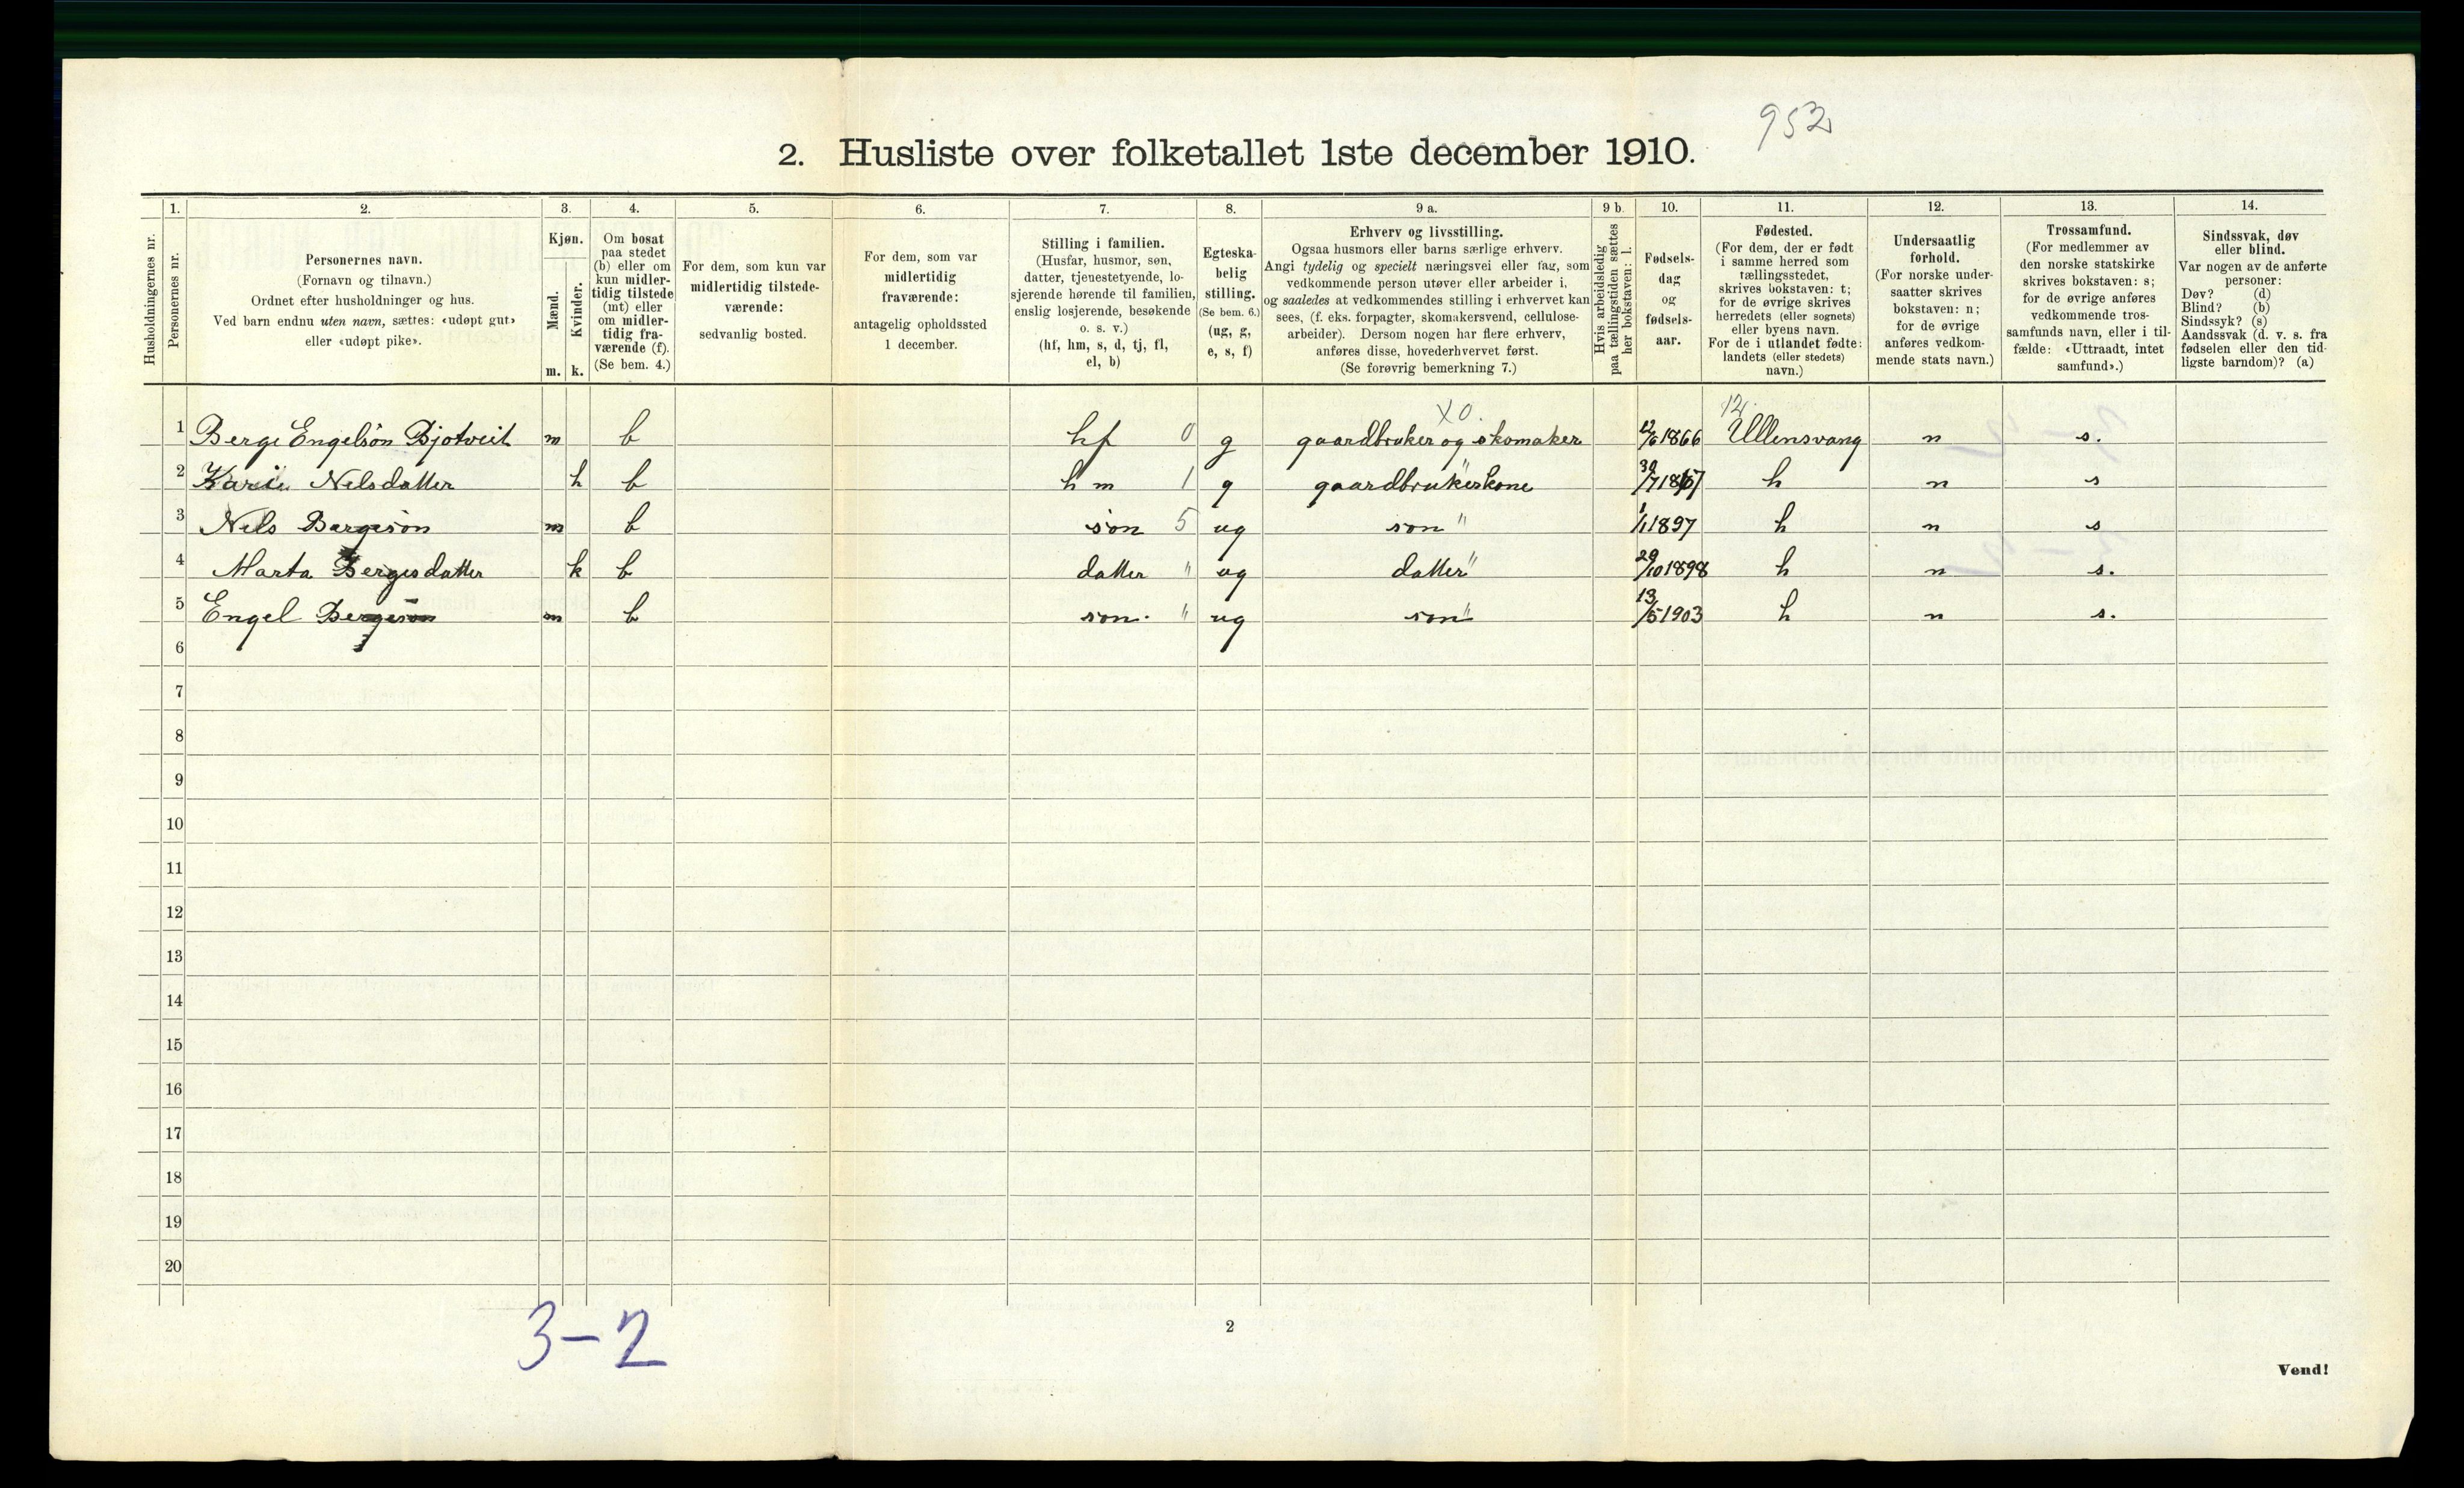 952
2. Husliste over folketallet 1ste december 1910.
Husholdningernes nr.
1.
Personernes nr.
2.
Personernes navn.
(Fornavn og tilnavn.)
Ordnet efter husholdninger og hus.
Ved barn endnu uten navn, sættes: «udøpt gut»
eller «udøpt pike».
3.
Kjøn.
Mænd.
Kvinder.
m. k.
4.
Om bosat
paa stedet
(b) eller om
kun midler-
tidig tilstede
(mt) eller
om midler-
tidig fra-
værende (f).
(Se bem. 4.)
5.
For dem, som kun var
midlertidig tilstede-
værende:
sedvanlig bosted.
6.
For dem, som var
midlertidig
fraværende:
antagelig opholdssted
1 december.
7.
Stilling i familien.
(Husfar, husmor, søn,
datter, tjenestetyende, lo-
sjerende hørende til familien,
enslig losjerende, besøkende
o. s. v.)
(hf, hm, s, d, tj, fl,
el, b)
8.
Egteska-
belig
stilling.
(Se bem. 6.)
(ug, g,
e, s, f)
9 a.
Erhverv og livsstilling.
Ogsaa husmors eller barns særlige erhverv.
Angi tydelig og specielt næringsvei eller fag, som
vedkommende person utøver eller arbeider i,
og saaledes at vedkommendes stilling i erhvervet kan
sees, (f. eks. forpagter, skomakersvend, cellulose-
arbeider). Dersom nogen har flere erhverv,
anføres disse, hovederhvervet først.
(Se forøvrig bemerkning 7.)
9 b.
Hvis arbeidsledig
paa tællingstiden sættes
her bokstaven: l.
10.
Fødsels-
dag
og
fødsels-
aar.
11.
Fødested.
(For dem, der er født
i samme herred som
tællingsstedet,
skrives bokstaven: t;
for de øvrige skrives
herredets (eller sognets)
eller byens navn.
For de i utlandet fødte:
landets (eller stedets)
navn.)
12.
Undersaatlig
forhold.
(For norske under-
saatter skrives
bokstaven: n;
for de øvrige
anføres vedkom-
mende stats navn.)
13.
Trossamfund.
(For medlemmer av
den norske statskirke
skrives bokstaven: s;
for de øvrige anføres
vedkommende tros-
samfunds navn, eller i til-
fælde: «Uttraadt, intet
samfund».)
14.
Sindssvak, døv
eller blind.
Var nogen av de anførte
personer:
Døv? (d)
Blind? (b)
Sindssyk? (s)
Aandssvak (d. v. s. fra
fødselen eller den tid-
ligste barndom)? (a)
X0. 12
1 Berge Engelsøn Bjotveit m b hf 0 g gaardbruker og skomaker 12/6 1866 Ullensvang n s.
2 Karie Nelsdatter k b hm 1 g gaardbrukerkone " 30/7 1867 h n s
3 Nels Bergesøn m b søn 5 ug søn " 1/1 1897 h n s
4 Marta Bergesdatter k b datter " ug datter " 29/10 1898 h n s.
5 Engel Bergesøn m b søn. " ug søn " 13/5 1903 h n s.
6
7
8
9
10
11
12
13
14
15
16
17
18
19
20
3-2
2
Vend!